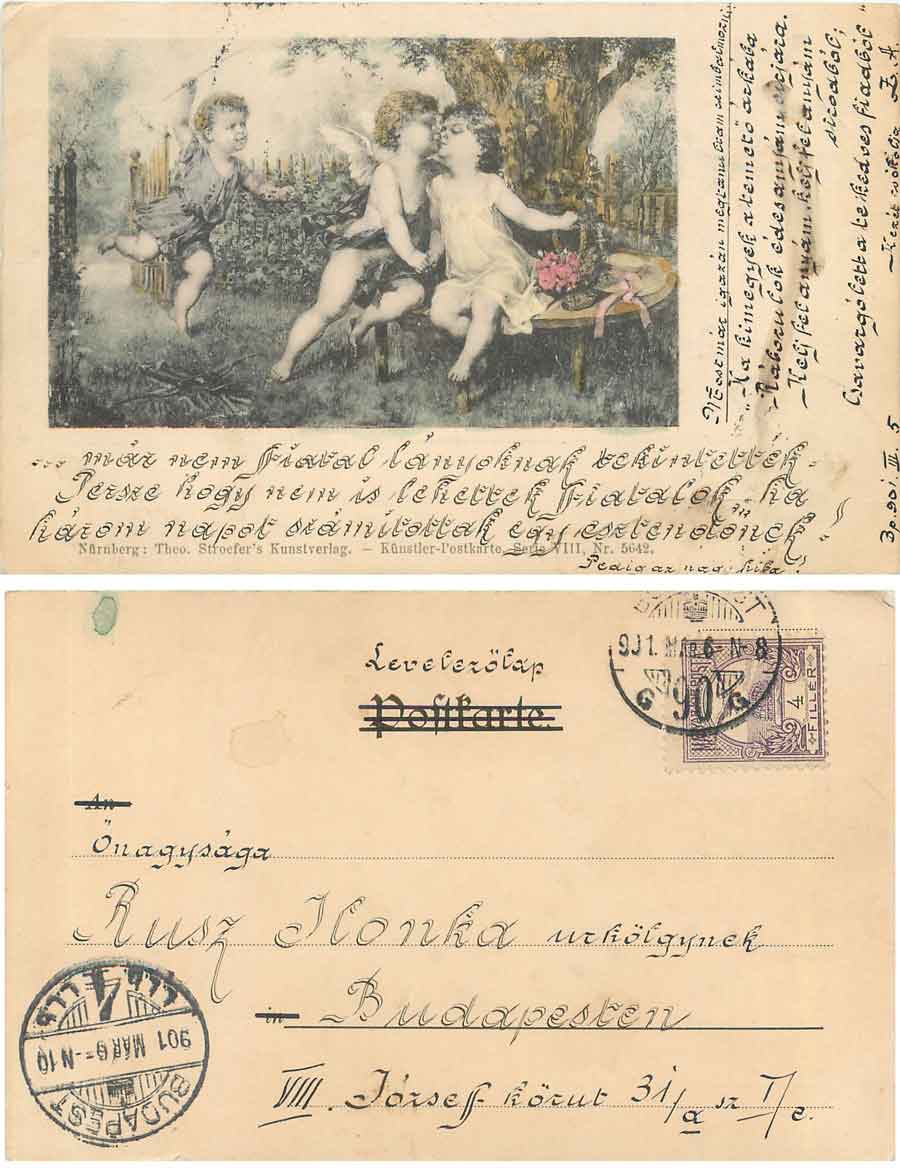 Most már igazán megtanultam czimbalmozni
"Ha kimegyek a temető árkába
Ráborulok édesanyám sirjára.
Kelj fel anyám, kelj fel anyám
sirodból,
Csavargó lett a te kedves fiadból"
Kezit csókolja
Z. A.
Bp. 901. III. 5
... már nem fiatal lányoknak tekintették.
Persze hogy nem is lehettek fiatalok, ha
három napot számítottak egy esztendőnek"
Nürnberg: Theo. Stroefer's Kunstverlag. — Künstler-Postkarte, Serie VIII, Nr. 5642.
Pedig az nagy hiba!
BUDAPEST
901. MÁR 6 - N 8
G 90 G
4
FILLÉR
Levelezőlap
Postkarte.
An
Őnagysága
Rusz Ilonka urhölgynek
in Budapesten
VIII. József körut 31/a sz I/e.
BUDAPEST
901 MÁR 6 - N 10